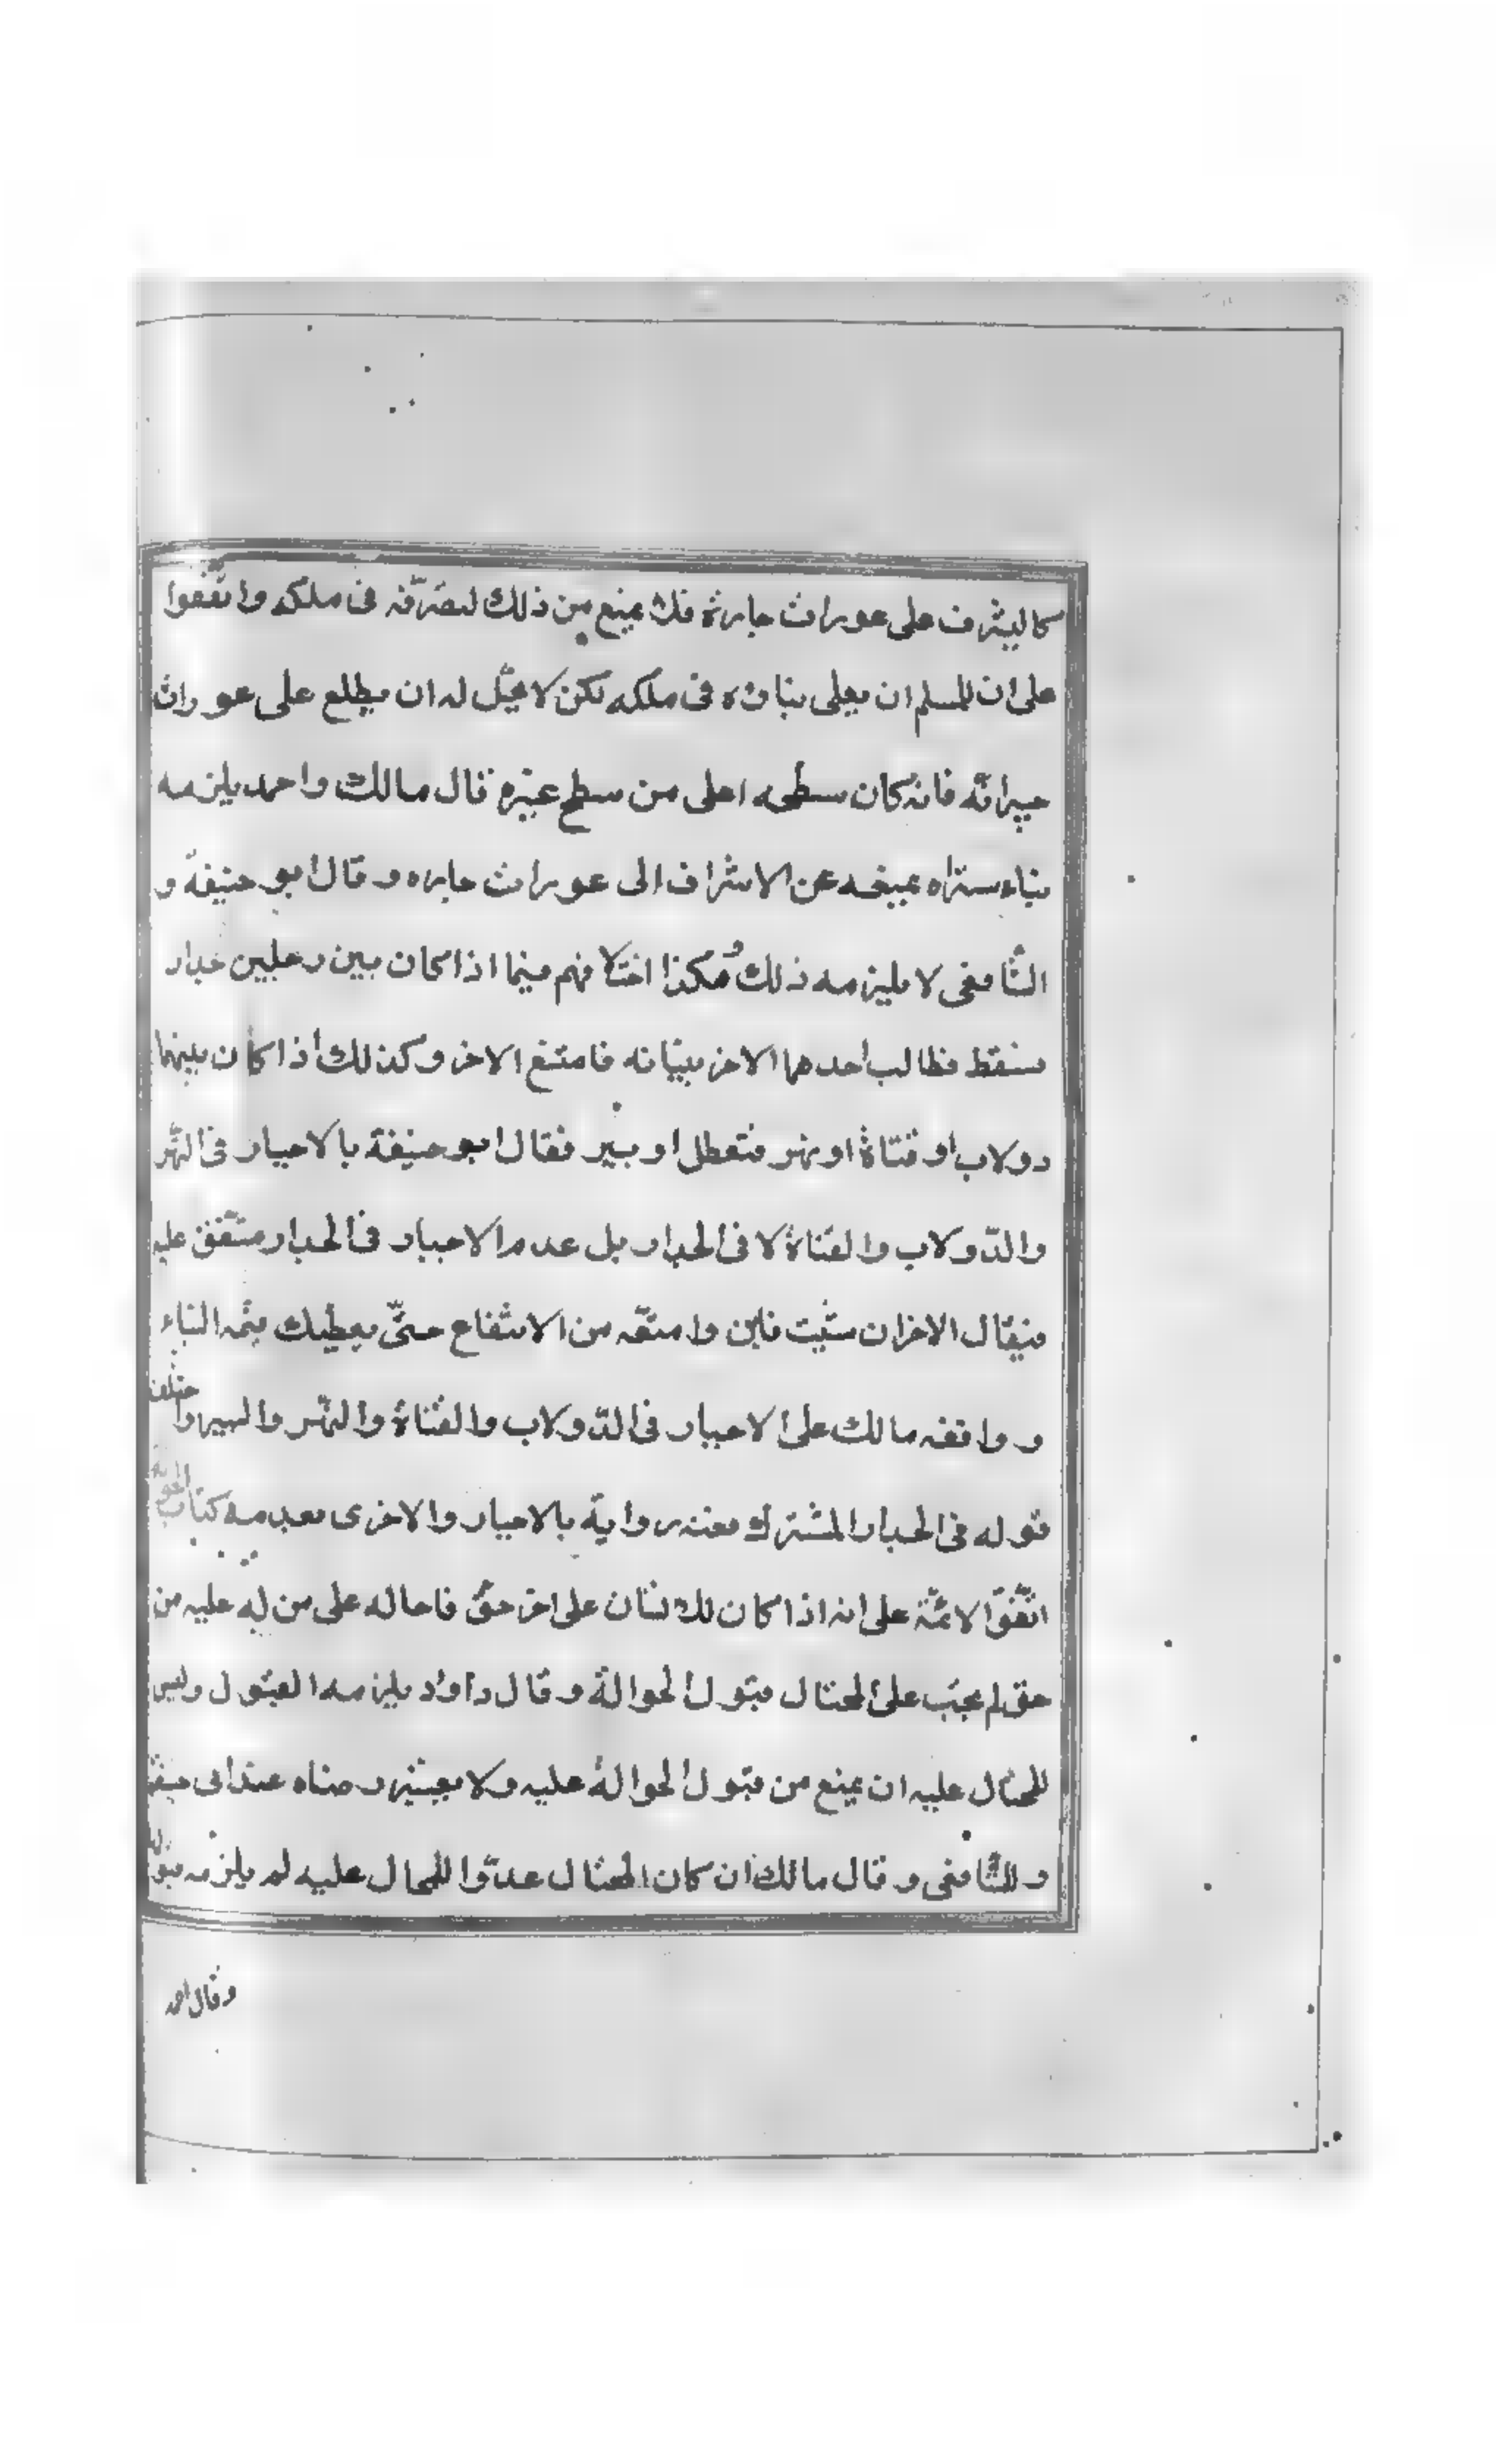 كما ليشرف على عورات جارة فلا يمنع من ذلك لتصرّفه فى ملكه واتّفقوا
على ان للمسلم ان يعلى بناؤه فى ملكه لكن لا يحلّ له ان يطلع على عورات
جيرانه فانه كان سطحه اعلى من سطح غيره قال مالك واحمد يلزمه
بناء ستراه يمنعه عن الاشراف الى عورات جاره وقال ابو حنيفة و
الشّافعى لا يلزمه ذلك وهكذا اختلافهم فيما اذا كان بين رجلين جدار
سقط فطالب احدهما الاخر ببنائه فامتنع الاخر وكذلك اذا كان بينهما
دولاب او قناة او نهر فتعطل او بير فقال ابو حنيفة بالاجبار فى النّهر
والدّولاب والقناة لا فى الجدار بل عدم الاجبار فى الجدار متّفق عليه
فيقال الاخر ان شئت فابن وامنعه من الانتفاع حتّى يعطيك قيمة البناء
ووافقه مالك على الاجبار فى الدّولاب والقناة والنّهر والبير واختلف
قوله فى الجدار المشترك فعنه رواية بالاجبار والاخرى بعدمه كتاب الحوالة
اتّفق الائمّة على انه اذا كان لانسان على اخر حقّ فاحاله على من له عليه من
حق لم يجب على المحتال قبول الحوالة وقال داود يلزمه القبول وليس
للمحتال عليه ان يمنع من قبول الحوالة عليه ولا يعتبر رضاه عند ابى حنيفة
وللشّافعى وقال مالك ان كان المحتال عدوّا للمحال عليه لم يلزمه قبولها
وقال احمد